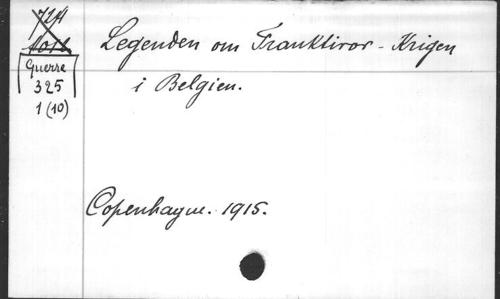 Legenden om Franktiror-Krigen
i Belgien.
Guerre
325
1 (10)
Copenhague. 1915.